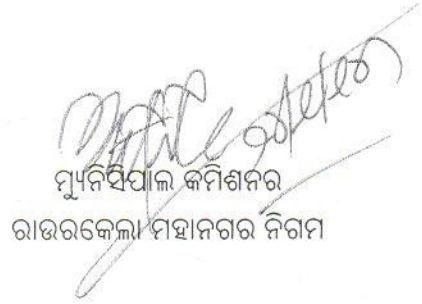 ମ୍ୟୁନିସିପାଲ କମିଶନର
ରାଉରକେଲା ମହାନଗର ନିଗମ